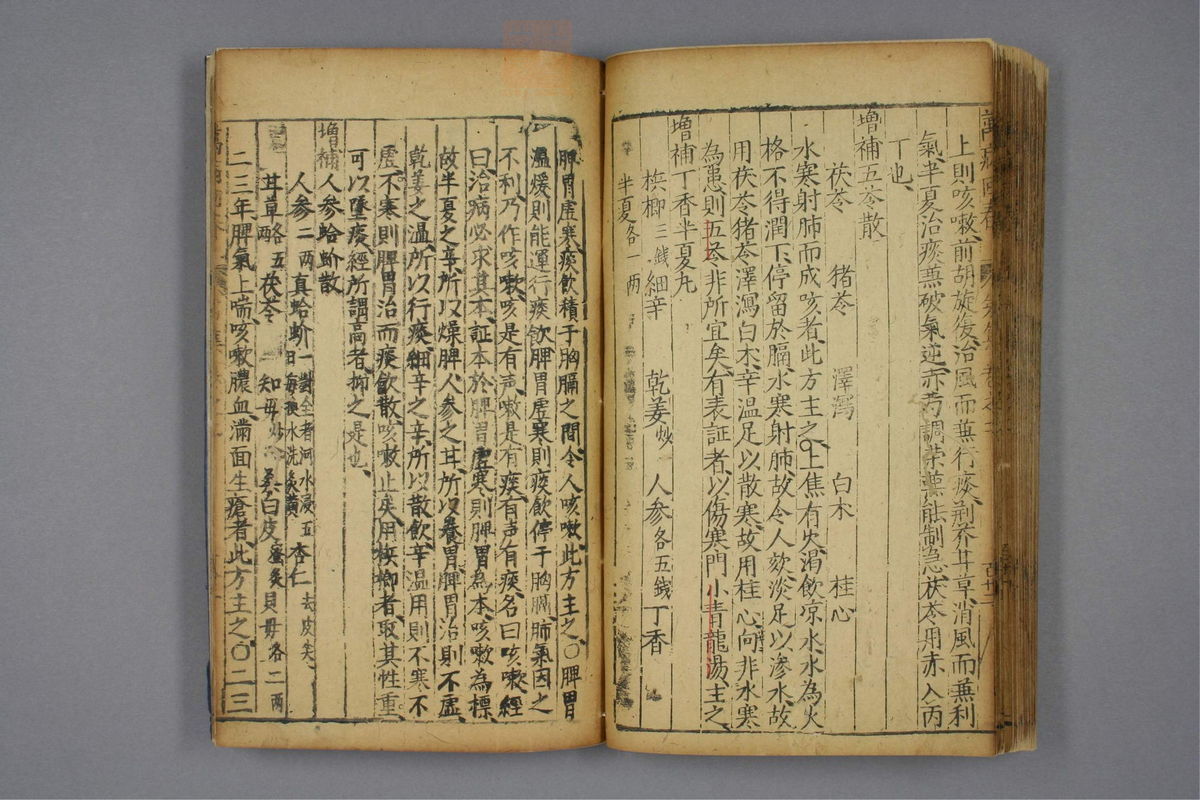 上則咳嗽前胡旋復治風而蕪行痰荆芥甘草消風而蕪利
氣半夏治痰蕪破氣逆赤芍調榮蕪能制急茯苓用赤入丙
丁也
增補五苓散
茯苓 猪苓 澤瀉 白朮 桂心
水寒射肺而成咳者此方主之○上焦有火渴飲凉水水為火
格不得潤下停留於膈水寒射肺故令人欬淡足以滲水故
用茯苓猪苓澤瀉白朮辛温足以散寒故用桂心向非水寒
為患則五苓非所宜矣有表証者以傷寒門小青龍湯主之
增補丁香半夏丸
梹榔三錢 細辛 乾姜炒 人參各五錢 丁香
半夏各一两
脾胃虛寒痰飲積于胸膈之間令人咳嗽此方主之○脾胃
溫煖則能運行痰飲脾胃虛寒則痰飲停于胸膈肺氣因之
不利乃作咳嗽咳是有声嗽是有痰有声有痰名曰咳嗽經
曰治病必求其本証本於脾胃虛寒則脾胃為本咳嗽為標
故半夏之辛所以燥脾人參之甘所以養胃脾胃治則不虛
乾姜之温所以行痰細辛之辛所以散飲辛温用則不寒不
虛不寒則脾胃治而痰飲散咳嗽止矣用梹榔者取其性重
可以墜痰經所謂高者抑之是也
增補人參蛤蚧散
人參二两 真蛤蚧一對全者河水浸五日每換水洗炙黄 杏仁去皮尖
甘草各五两 茯苓 知母 桑白皮蜜炙 貝母各二两
二三年脾氣上喘咳嗽膿血滿面生瘡者此方主之○二三